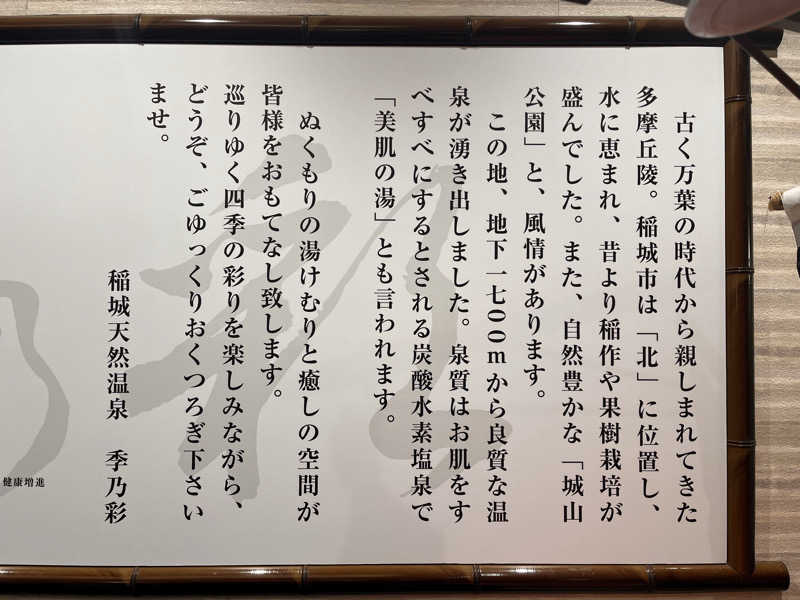 古く万葉の時代から親しまれてきた
多摩丘陵。稲城市は「北」に位置し、
水に恵まれ、昔より稲作や果樹栽培が
盛んでした。また、自然豊かな「城山
公園」と、風情があります。
この地、地下一七００ｍから良質な温
泉が湧き出しました。泉質はお肌をす
べすべにするとされる炭酸水素塩泉で
「美肌の湯」とも言われます。
ぬくもりの湯けむりと癒しの空間が
皆様をおもてなし致します。
巡りゆく四季の彩りを楽しみながら、
どうぞ、ごゆっくりおくつろぎ下さい
ませ。
稲城天然温泉　季乃彩
健康増進